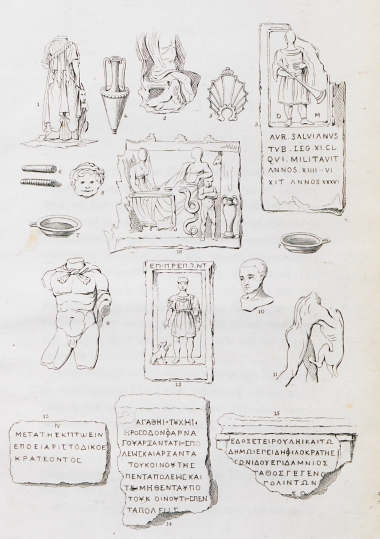 D M
AVR. SALVIANVS
TVB. LEG XI. CL
QVI. MILITAVIT
ANNOS XIIII - VI
XIT ANNOS XXXVI
ΕΠΙ ΠΡΕΠΟΝΤ
13
Ν
ΜΕΤΑΤΗΣΚΠΤΩΕΙΝ
ΕΠΟΕΙΑΡΙΣΤΟΔΙΚΟΣ
ΚΡΑΤΕΟΝΤΟΣ
ΑΓΑΘΗΙ · ΤΥΧΗΙ
ΓΟΥΑΡΞΑΝΤΑΤΗΣΠΟ
ΛΕΩΣΚΑΙΑΡΞΑΝΤΑ
ΤΟΥΚΟΙΝΟΥΤΗΣ
ΠΕΝΤΑΠΟΛΕΩΣΚΑΙ
ΤΕΙΜΗΘΕΝΤΑΥΠΟ
ΤΟΥΚΟΙΝΟΥΤΗΣΠΕΝ
ΤΑΠΟΛΕΩΣ
14
15
ΕΔΟΞΕΤΕΙΒΟΥΛΗΙΚΑΙΤΩ
ΔΗΜΩΙΕΠΕΙΔΗΦΙΛΟΚΡΑΤΗΣ
ΓΩΝΙΔΟΥΕΠΙΔΑΜΝΙΟΣ
ΤΑΘΟΣΓΕΓΕΝΟ
ΓΟΛΙΝΤΩΝ